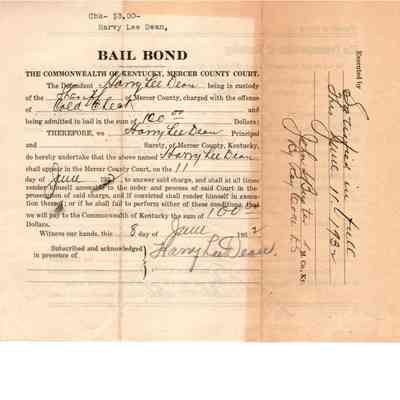 Chk- $3.00-
Harvy Lee Dean,
BAIL BOND
THE COMMONWEALTH OF KENTUCKY, MERCER COUNTY COURT.
The Defendant Harry Lee Dean being in custody
of the of Mercer County, charged with the offense
of Cold Check
being admitted to bail in the sum of 100 00 Dollars:
THEREFORE, we Harry Lee Dean Principal
and Surety, of Mercer County, Kentucky,
do hereby undertake that the above named Harry Lee Dean
shall appear in the Mercer County Court, on the 11
day of June 193 , to answer said charge, and shall at all times
render himself amenable to the order and process of said Court in the
prosecution of said charge, and if convicted shall render himself in execu-
tion thereof; or if he shall fail to perform either of these conditions, that
we will pay to the Commonwealth of Kentucky the sum of 100 00
Dollars.
Witness our hands, this 8 day of June 193 2
Subscribed and acknowledged
in presence of
Harry Lee Dean.
Executed by
Satisfied in full
This June 1932
John
M. Co. Ky.
By